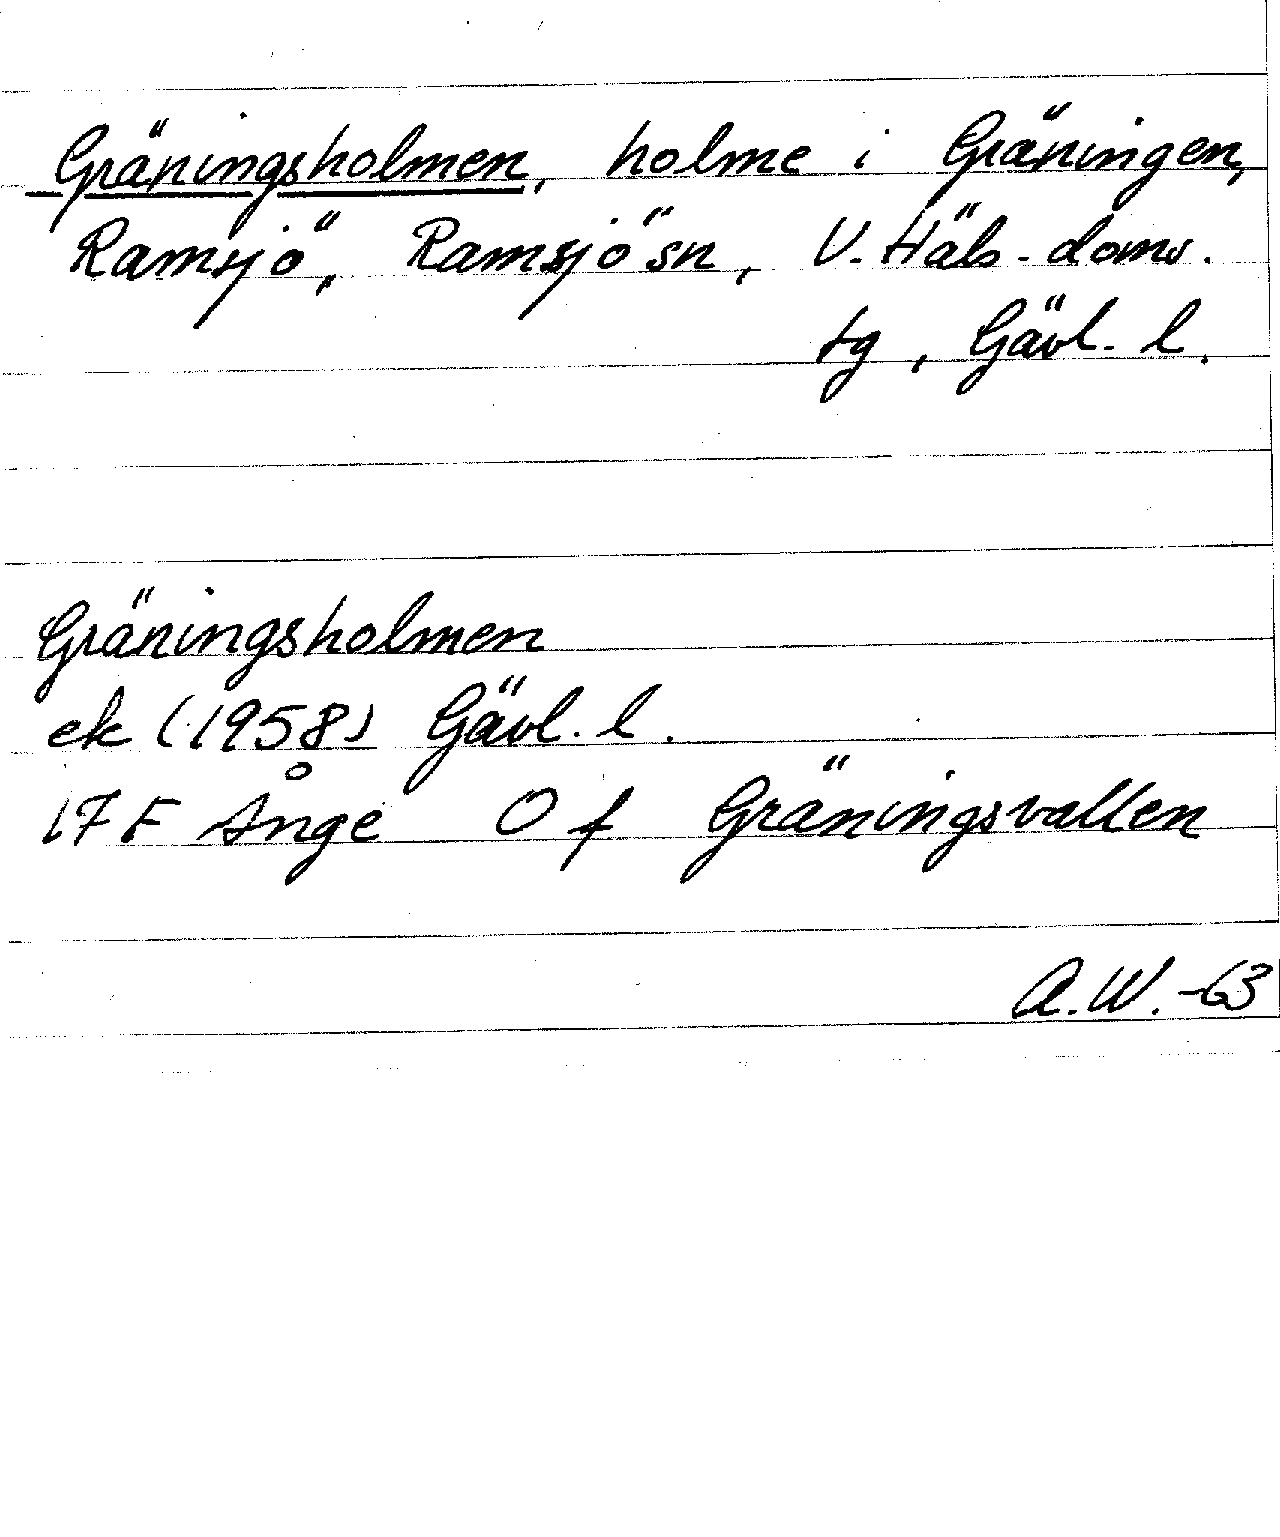 Gräningsholmen, holme i Gräningen,
Ramsjö, Ramsjö sn, V. Häls. doms.
tg, Gävl. l.
Gräningsholmen
ek (1958) Gävl. l.
17 F Ånge O f Gräningsvallen
A.W. -63